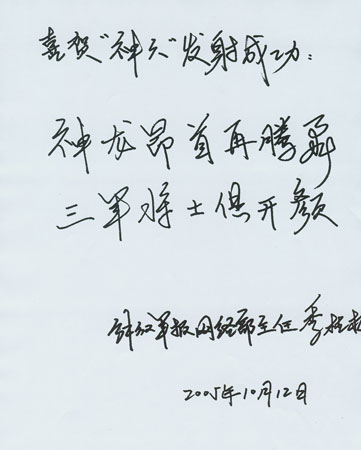 喜贺"神六"发射成功:
神龙昂首再腾飛
三军将士俱开颜
解放军报网络部主任
2005年10月12日